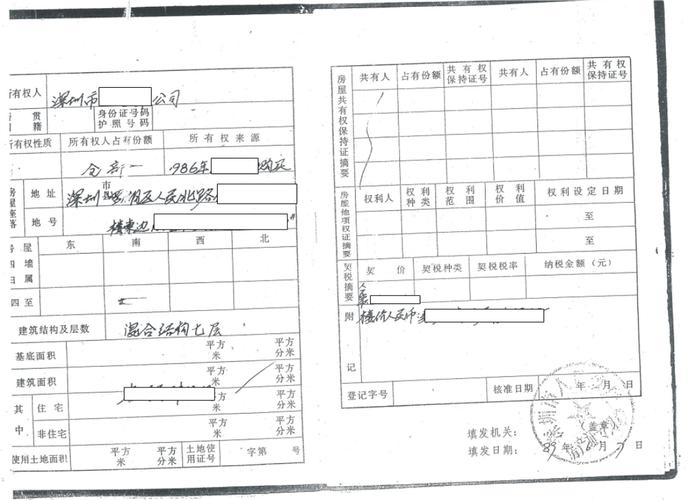 所有权人 深圳市 公司
籍贯 身份证号码
护照号码
所有权性质 所有权人占有份额 所有权来源
全部 1986年 购买
房屋座落 地址 深圳市 区人民北路
地号 楼东边
房屋四墙归属 东 南 西 北
四至
建筑结构及层数 混合结构七层
基底面积 平方米 平方分米
建筑面积 平方米 平方分米
其中 住宅 平方米 平方分米
非住宅 平方米 平方分米
使用土地面积 平方米 平方分米 土地使用证号 字第 号
房屋共有权保持证摘要 共有人 占有份额 共有权保持证号 共有人 占有份额 共有权保持证号
房屋他项权证摘要 权利人 权利种类 权利范围 权利价值 权利设定日期
至
至
契税摘要 契价 契税种类 契税税率 纳税金额（元）
附记 楼价人民币
登记字号 核准日期 年 月 日
填发机关： （盖章）
填发日期： 89年 月 日